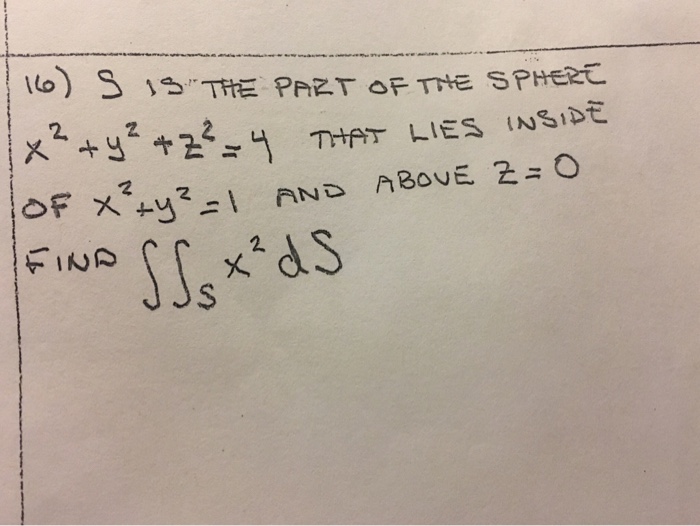 16) S IS THE PART OF THE SPHERE
x² + y² + z² = 4 THAT LIES INSIDE
OF x² + y² = 1 AND ABOVE Z = 0
FIND ∬ₛ x² dS